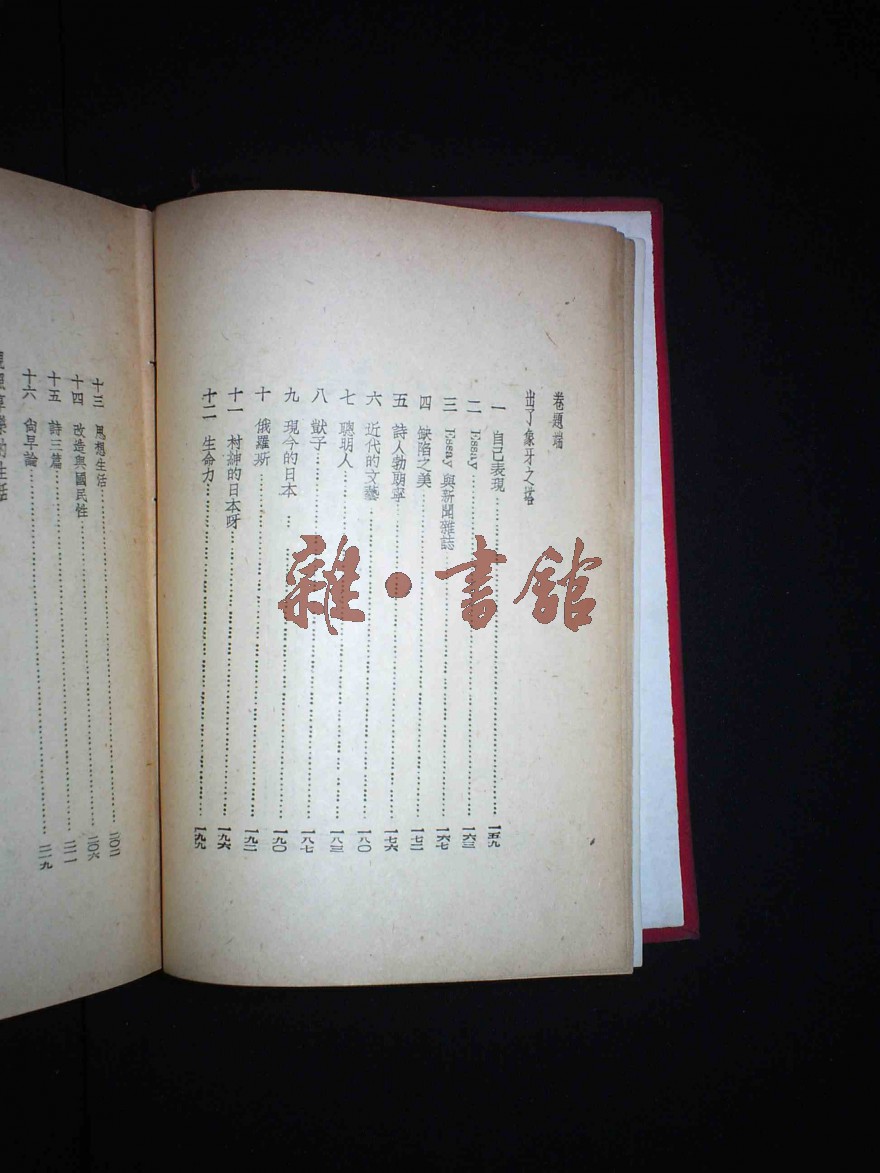 卷題端
出了象牙之塔
一 自己表現……一五九
二 Essay……一六三
三 Essay與新聞雜誌……一六七
四 缺陷之美……一七二
五 詩人勃朗寧……一七六
六 近代的文藝……一八〇
七 聰明人……一八三
八 獃子……一八七
九 現今的日本……一九〇
十 俄羅斯……一九二
十一 村紳的日本呀……一九六
十二 生命力……一九九
十三 思想生活……二〇二
十四 改造與國民性……二〇六
十五 詩三篇……二一一
十六 尙早論……二一九
的生活
雜·書館